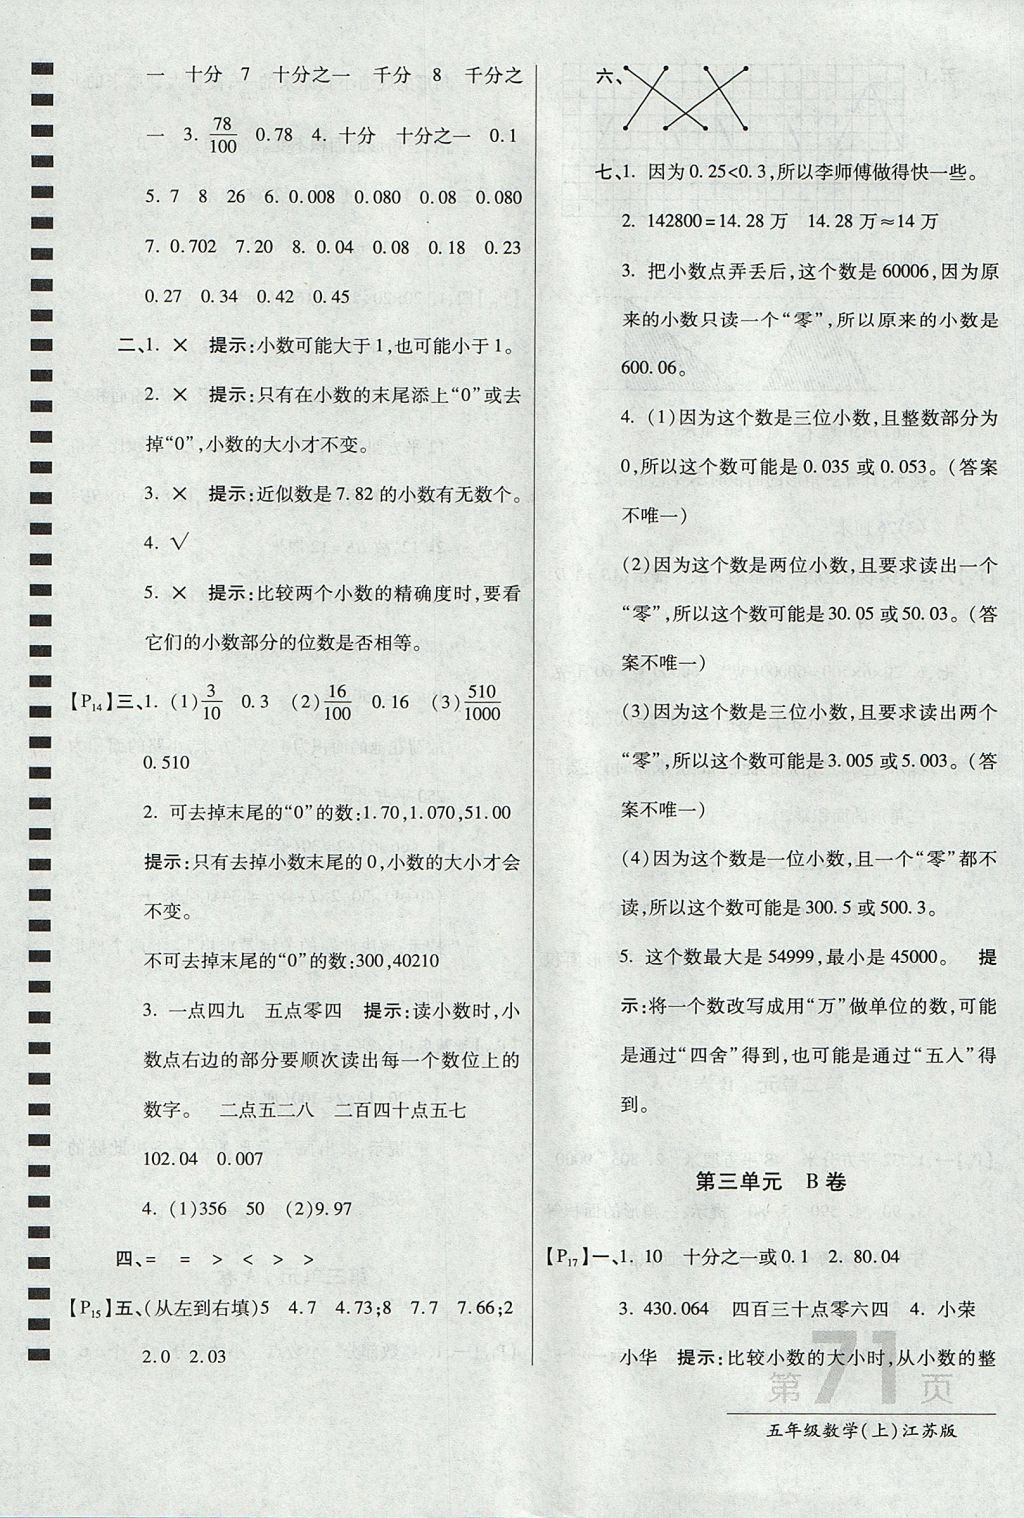 一　十分　7　十分之一　千分　8　千分之
一　3. 78/100　0.78　4. 十分　十分之一　0.1
5. 7　8　26　6. 0.008　0.080　0.08　0.080
7. 0.702　7.20　8. 0.04　0.08　0.18　0.23
0.27　0.34　0.42　0.45
二、1. ×　提示:小数可能大于1,也可能小于1。
2. ×　提示:只有在小数的末尾添上“0”或去
掉“0”,小数的大小才不变。
3. ×　提示:近似数是7.82的小数有无数个。
4. √
5. ×　提示:比较两个小数的精确度时,要看
它们的小数部分的位数是否相等。
【P14】三、1. (1)3/10　0.3　(2)16/100　0.16　(3)510/1000
0.510
2. 可去掉末尾的“0”的数:1.70,1.070,51.00
提示:只有去掉小数末尾的0,小数的大小才会
不变。
不可去掉末尾的“0”的数:300,40210
3. 一点四九　五点零四　提示:读小数时,小
数点右边的部分要顺次读出每一个数位上的
数字。　二点五二八　二百四十点五七
102.04　0.007
4. (1)356　50　(2)9.97
四、=　=　>　<　>　>
【P15】五、(从左到右填)5　4.7　4.73;8　7.7　7.66;2
2.0　2.03
六、
七、1. 因为0.25<0.3,所以李师傅做得快一些。
2. 142800=14.28万　14.28万≈14万
3. 把小数点弄丢后,这个数是60006,因为原
来的小数只读一个“零”,所以原来的小数是
600.06。
4. (1)因为这个数是三位小数,且整数部分为
0,所以这个数可能是0.035或0.053。(答案
不唯一)
(2)因为这个数是两位小数,且要求读出一个
“零”,所以这个数可能是30.05或50.03。(答
案不唯一)
(3)因为这个数是三位小数,且要求读出两个
“零”,所以这个数可能是3.005或5.003。(答
案不唯一)
(4)因为这个数是一位小数,且一个“零”都不
读,所以这个数可能是300.5或500.3。
5. 这个数最大是54999,最小是45000。　提
示:将一个数改写成用“万”做单位的数,可能
是通过“四舍”得到,也可能是通过“五人”得
到。
第三单元　B卷
【P17】一、1. 10　十分之一或0.1　2. 80.04
3. 430.064　四百三十点零六四　4. 小荣
小华　提示:比较小数的大小时,从小数的整
第71页
五年级数学(上)江苏版